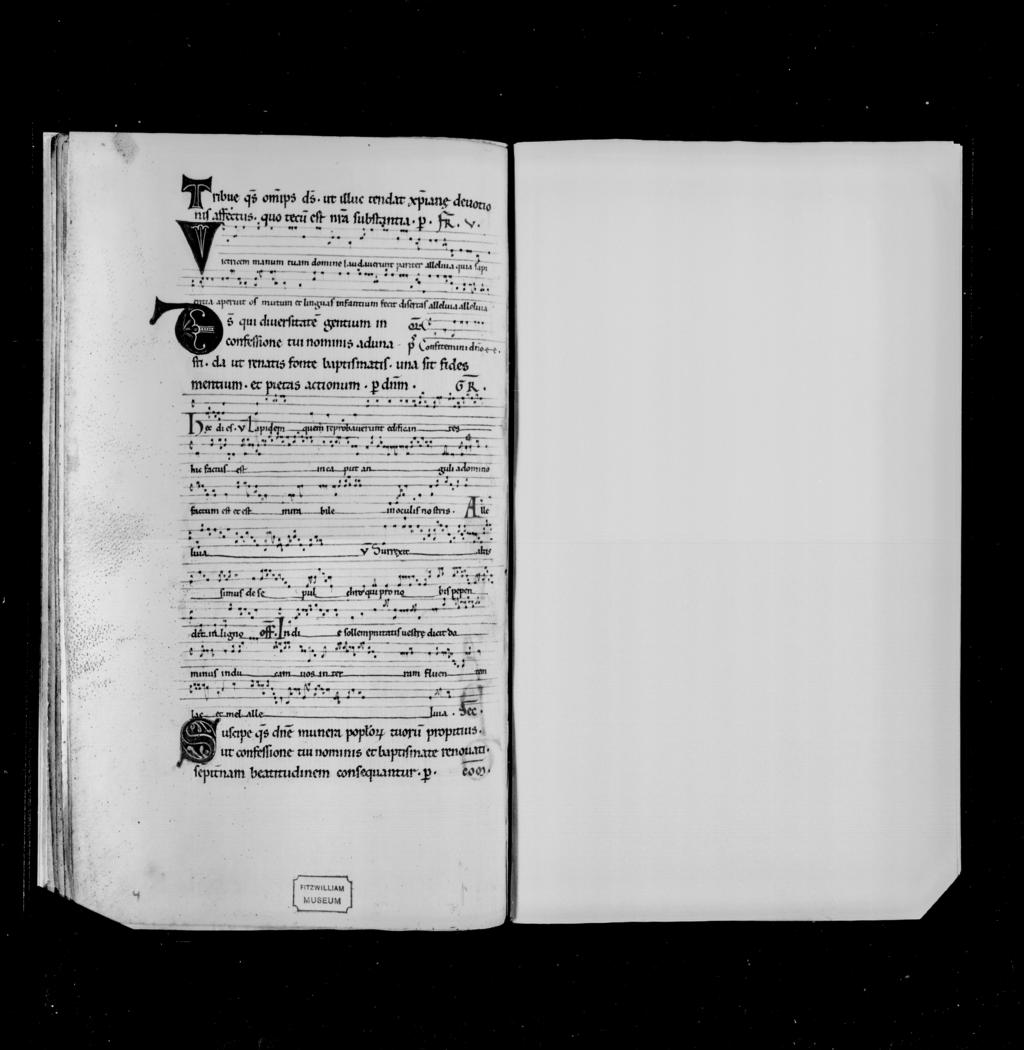 Tribue q̄s om̄ips d̄s. ut illuc tendat xp̄ianę deuotio
nis affectus. quo tecū est nr̄a substantia. p. FR. V.
Victricem manum tuam domine laudauerunt pariter alleluia quia sapi
entia aperuit os mutum et linguas infantium fecit disertas alleluia alleluia
Ds̄ qui diuersitatē gentium in
confessione tui nominis aduna p̄ Confitemini dn̄o
sti. da ut renatis fonte baptismatis. una sit fides
mentium. et pietas actionum. p dn̄m. GR.
Hec dies. v Lapidem quem reprobauerunt edifican tes
hic factus est in ca put an guli a domino
factum est et est mira bile in oculis nostris. Alle
luia v Surrexit altis
simus de se pul chro qui pro no bis pepen
dit in ligno off. In di e sollempnitatis uestrę dicit do
minus indu cam uos in ter ram fluen tem
lac et mel alle luia. Sec.
Suscipe q̄s dn̄e munera poploꝝ tuorū propitius.
ut confessione tui nominis et baptismate renouati.
sempitnam beatitudinem consequantur. p. com.
4
FITZWILLIAM
MUSEUM